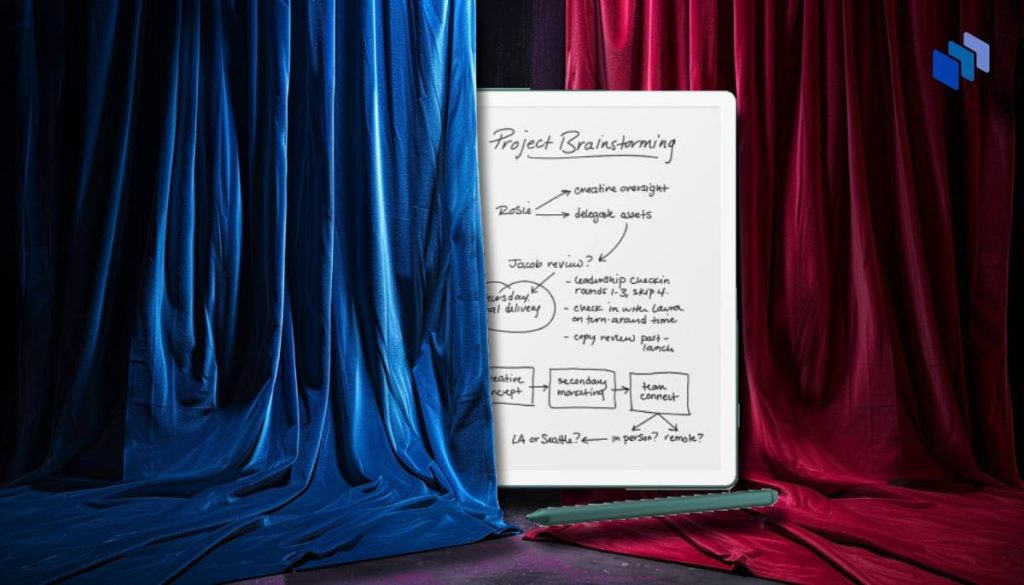 Project Brainstorming
creative oversight
Rosie
delegate assets
Jacob review?
- leadership checkin
rounds 1-3, skip 4.
- check in with Laura
on turn-around time
- copy review post-
launch
al delivery
secondary
marketing
team
connect
LA or Seattle? in person? remote?